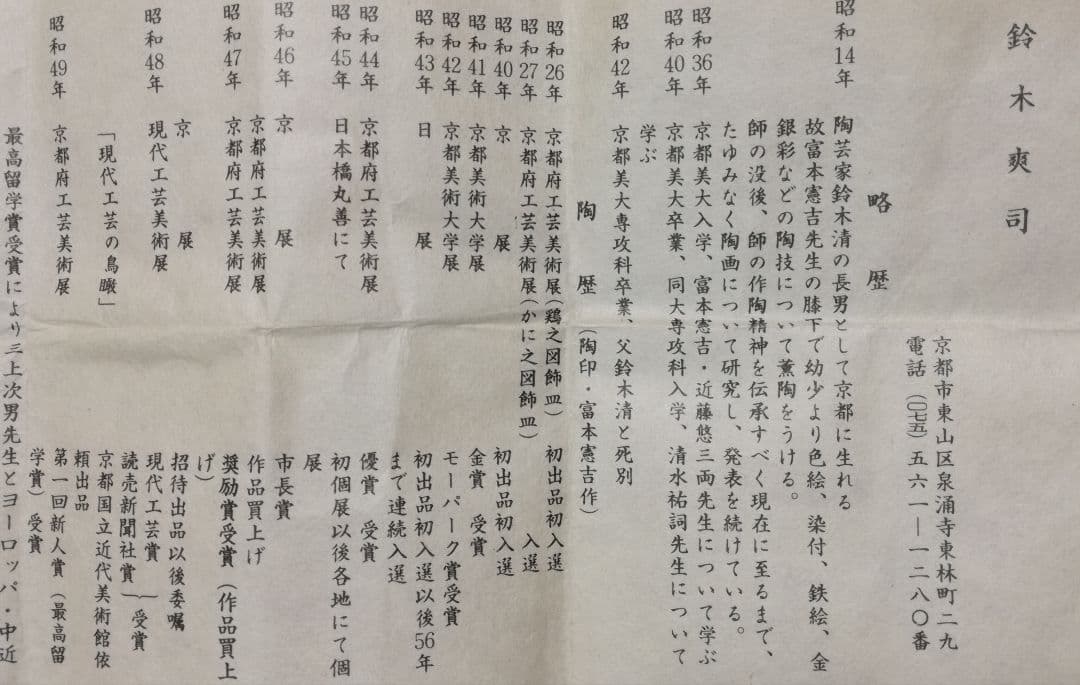 鈴木爽司
京都市東山区泉涌寺東林町二九
電話（〇七五）五六一―一二八〇番
略歴
昭和14年 陶芸家鈴木清の長男として京都に生れる
故富本憲吉先生の膝下で幼少より色絵、染付、鉄絵、金
銀彩などの陶技について薫陶をうける。
師の没後、師の作陶精神を伝承すべく現在に至るまで、
たゆみなく陶画について研究し、発表を続けている。
昭和36年 京都美大入学、富本憲吉・近藤悠三両先生について学ぶ
昭和40年 京都美大卒業、同大専攻科入学、清水祐詞先生について
学ぶ
昭和42年 京都美大専攻科卒業、父鈴木清と死別
陶歴（陶印・富本憲吉作）
昭和26年 京都府工芸美術展（鶏之図飾皿） 初出品初入選
昭和27年 京都府工芸美術展（かに之図飾皿） 入選
昭和40年 京展 初出品初入選
昭和41年 京都美術大学展 金賞 受賞
昭和42年 京都美術大学展 モーパーク賞受賞
昭和43年 日展 初出品初入選以後56年
まで連続入選
昭和44年 京都府工芸美術展 優賞 受賞
昭和45年 日本橋丸善にて 初個展以後各地にて個
展
昭和46年 京展 市長賞
京都府工芸美術展 作品買上げ
昭和47年 京都府工芸美術展 奨励賞受賞（作品買上
げ）
京展 招待出品以後委嘱
昭和48年 現代工芸美術展 現代工芸賞
読売新聞社賞 受賞
「現代工芸の鳥瞰」 京都国立近代美術館依
頼出品
昭和49年 京都府工芸美術展 第一回新人賞（最高留
学賞）受賞
最高留学賞受賞により三上次男先生とヨーロッパ・中近